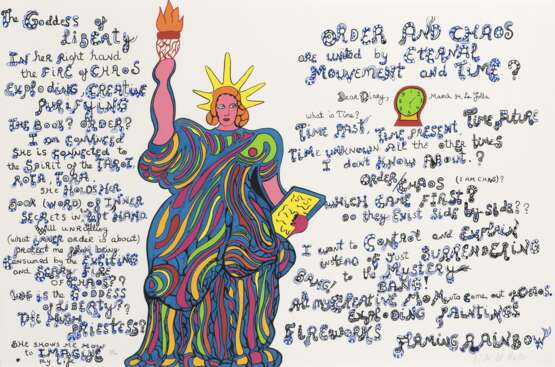 The Goddess of
LIBERTY
IN her Right hand
the FIRE of CHAOS
EXPLODING CREATIVE
PURIFYING
THE BOOK? ORDER?
I am CONVINCED
SHE IS CONNECTED to
the SPIRIT of the TAROT
ROTA, TORA.
SHE HOLDS HER
BOOK (WORD) OF INNER
SECRETS IN LEFT HAND.
Will UNROLLING
(what INNER ORDER is about)
PROTECT me from being
CONSUMED by the EXCITING
and SCARY FIRE
OF CHAOS??
WHO IS the GODDESS
of LIBERTY??
THE HIGH
PRIESTESS?
SHE SHOWS ME HOW
to IMAGINE
my LIFE
ORDER AND CHAOS
are united by ETERNAL
MOUVEMENT and TIME?
Dear Diary,
what is Time?
TIME PAST, TIME PRESENT, TIME FUTURE
TIME UNKNOWN All the other times
I don't KNOW ABOUT.?
ORDER/CHAOS (I AM CHAOS?)
WHICH CAME FIRST?
Do they EXIST SIDE by SIDE??
I want to CONTROL and EXPLAIN
INSTEAD of just SURRENDERING
to the MYSTERY
BANG! BANG!
All my CREATIVE MOMENTS come out of CHAOS.
EXPLODING PAINTINGS
FIREWORKS FLAMING RAINBOW